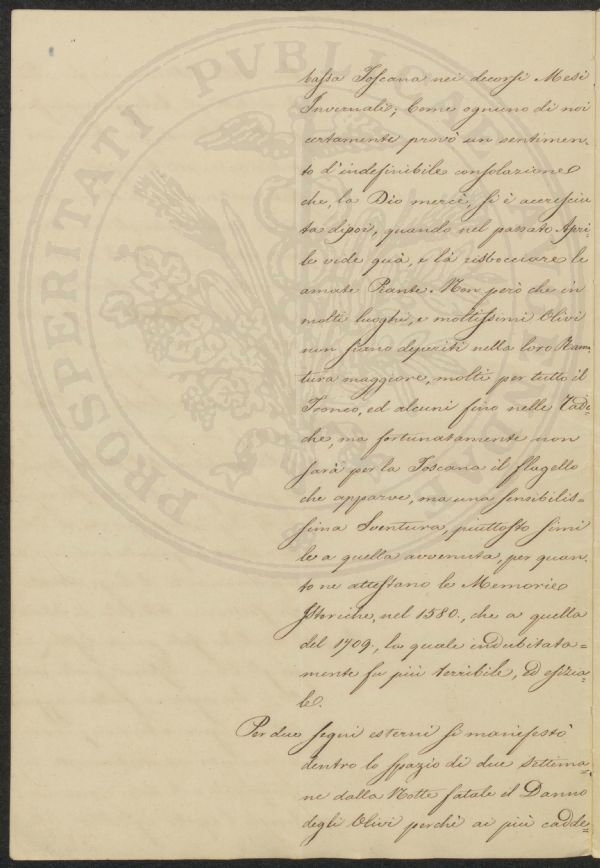 bassa Toscana nei decorsi Mesi
Invernali; Come ognuno di noi
certamente provò un sentimen-
to d'indefinibile consolazione
che, la Dio mercè, si è accresciu
ta dipoi, quando nel passato Apri-
le vide quà, e là risbocciare le
amate Piante. Non però che in
molti luoghi, e moltissimi Olivi
non siano deperiti nella loro Ram-
tura maggiore, molti per tutto il
Tronco, ed alcuni fino nelle Radi-
che, ma fortunatamente non
sarà per la Toscana il flagello
che apparve, ma una sensibilis=
sima Sventura, piuttosto simi
le a quella avvenuta, per quan-
to ne attestano le Memorie
Istoriche, nel 1580., che a quella
del 1709., la quale indubitata=
mente fu più terribile, ed esizia-
le.
Per due segni esterni si manifestò
dentro lo spazio di due settima-
ne dalla Notte fatale il Danno
degli Olivi perchè ai più cadde-
PROSPERITATI PVBLICAE